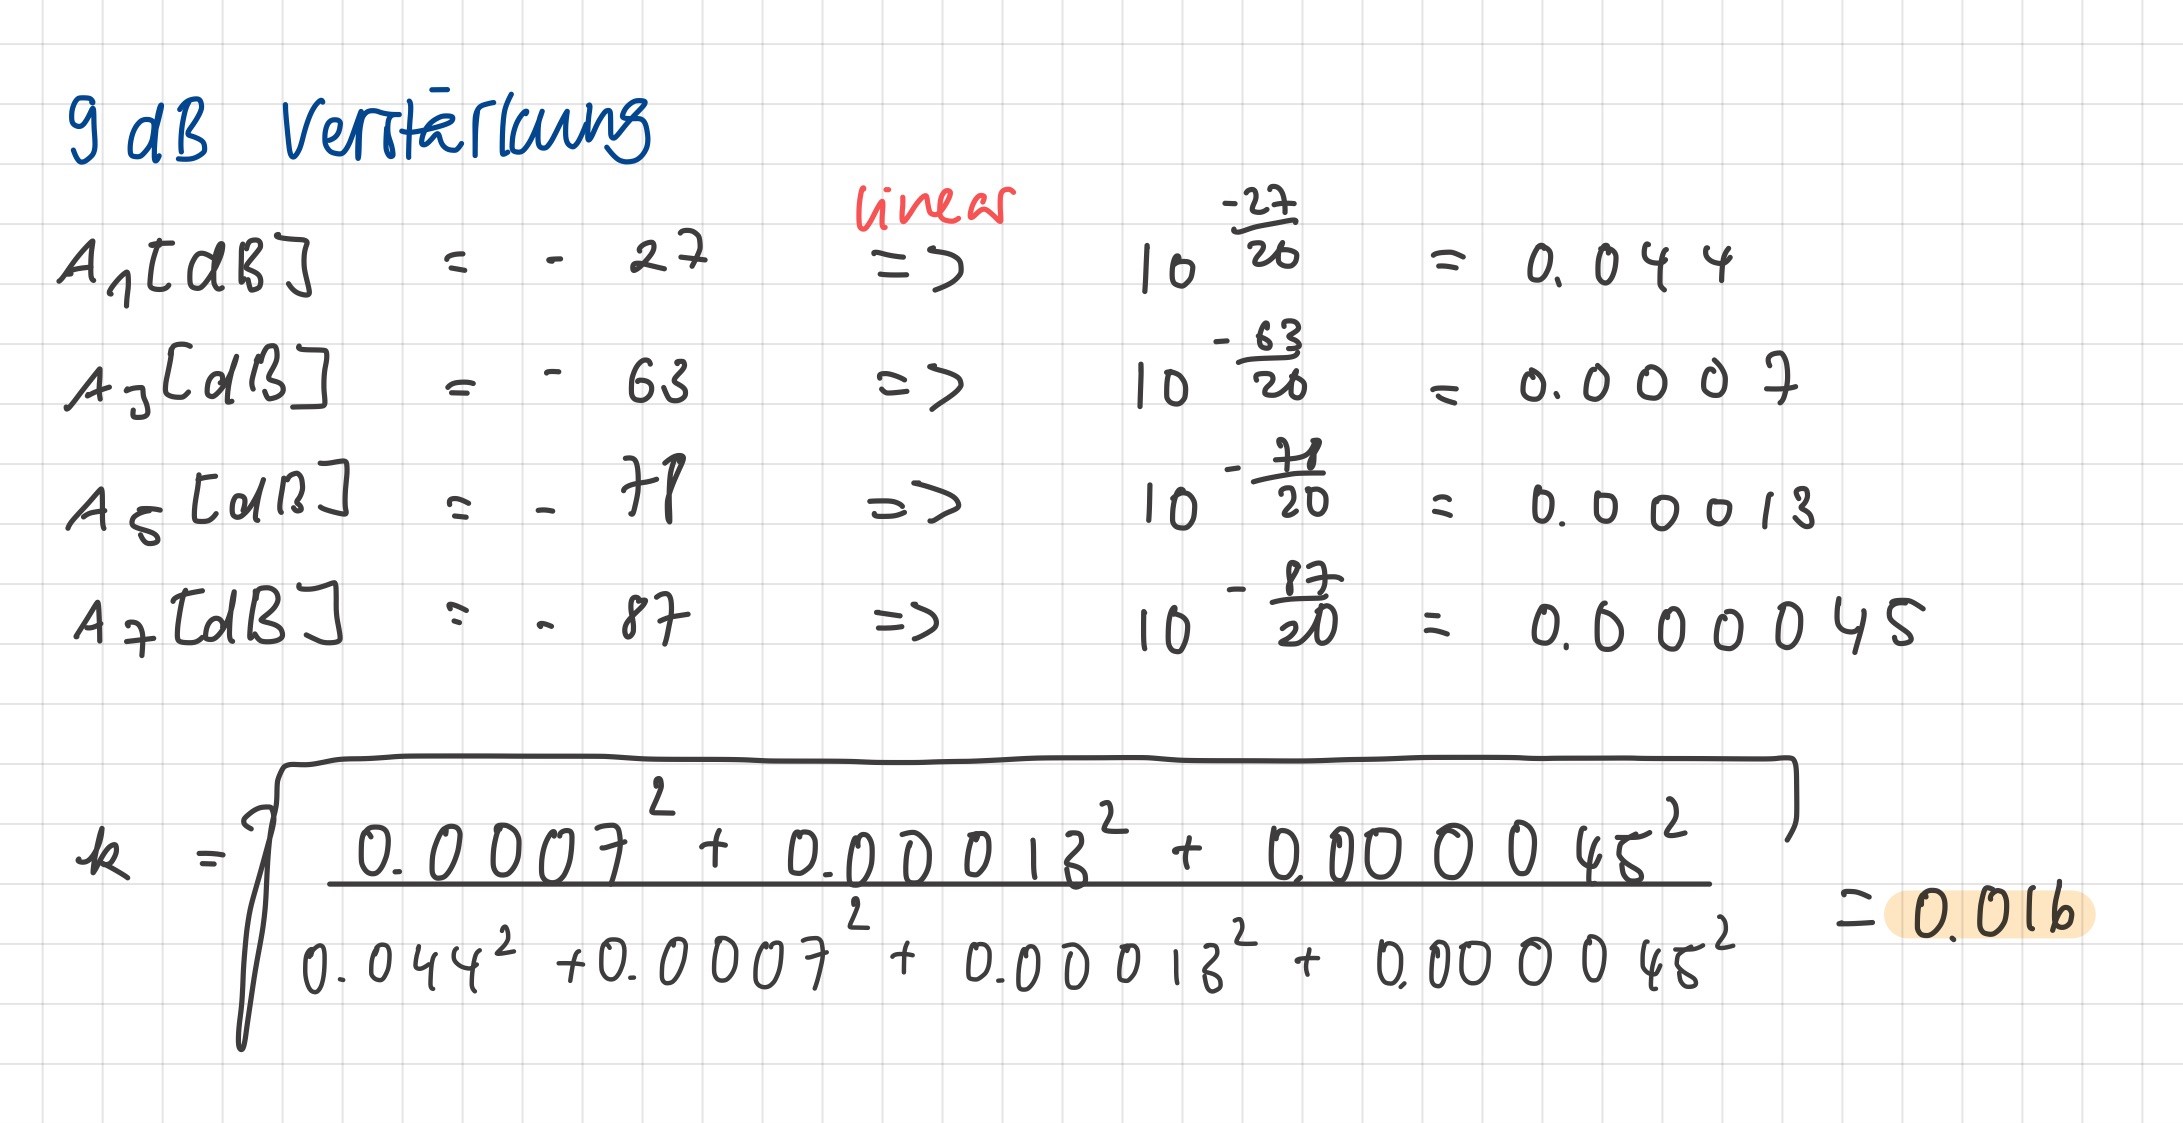 9 dB Verstärkung
linear
A₁[dB] = - 27 => 10^(-27/20) = 0.044
A₃[dB] = - 63 => 10^(-63/20) = 0.0007
A₅[dB] = - => 10 = 0.00013
A₇[dB] = - 87 => 10^(-87/20) = 0.000045
k = √((0.0007² + 0.00013² + 0.000045²)/(0.044² + 0.0007² + 0.00013² + 0.000045²)) = 0.016